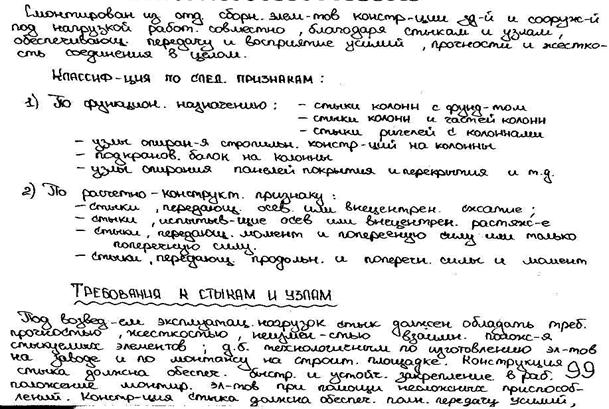 Смонтирован из отд. сборн. элем-тов констр-ции зд-й и сооруж-й
под нагрузкой работ. совместно, благодаря стыкам и узлам,
обеспечивающ. передачу и восприятие усилий, прочности и жестко-
сть соединения в целом.
Классиф-ция по след. признакам:
1) По функцион. назначению: – стыки колонн с фунд-том
– стыки колонн и частей колонн
– стыки ригелей с колоннами
– узлы опиран-я стропильн. констр-ций на колонны
– подкранов. балок на колонны
– узлы опирания панелей покрытия и перекрытия и т.д.
2) По расчетно-конструкт. признаку:
– стыки, передающ. осев. или внецентрен. сжатие;
– стыки, испытыв-щие осев или внецентрен. растяж-е
– стыки, передающ. момент и поперечную силу или только
поперечную силу.
– стыки, передающ. продольн. и поперечн. силы и момент
Требования к стыкам и узлам
Под возвед-ем эксплуатац. нагрузок стык должен обладать треб.
прочностью, жесткостью, неизмен-стью взаимн. полож-я
стыкуемых элементов; д.б. технологичным по изготовлению эл-тов
на заводе и по монтажу на строит. площадке. Конструкция
стыка должна обеспеч. быстр. и устойч. закрепление в раб.
99
положение монтир. эл-тов при помощи несложных приспособ-
лений. Констр-ция стыка должна обеспеч. полн. передачу усилий,